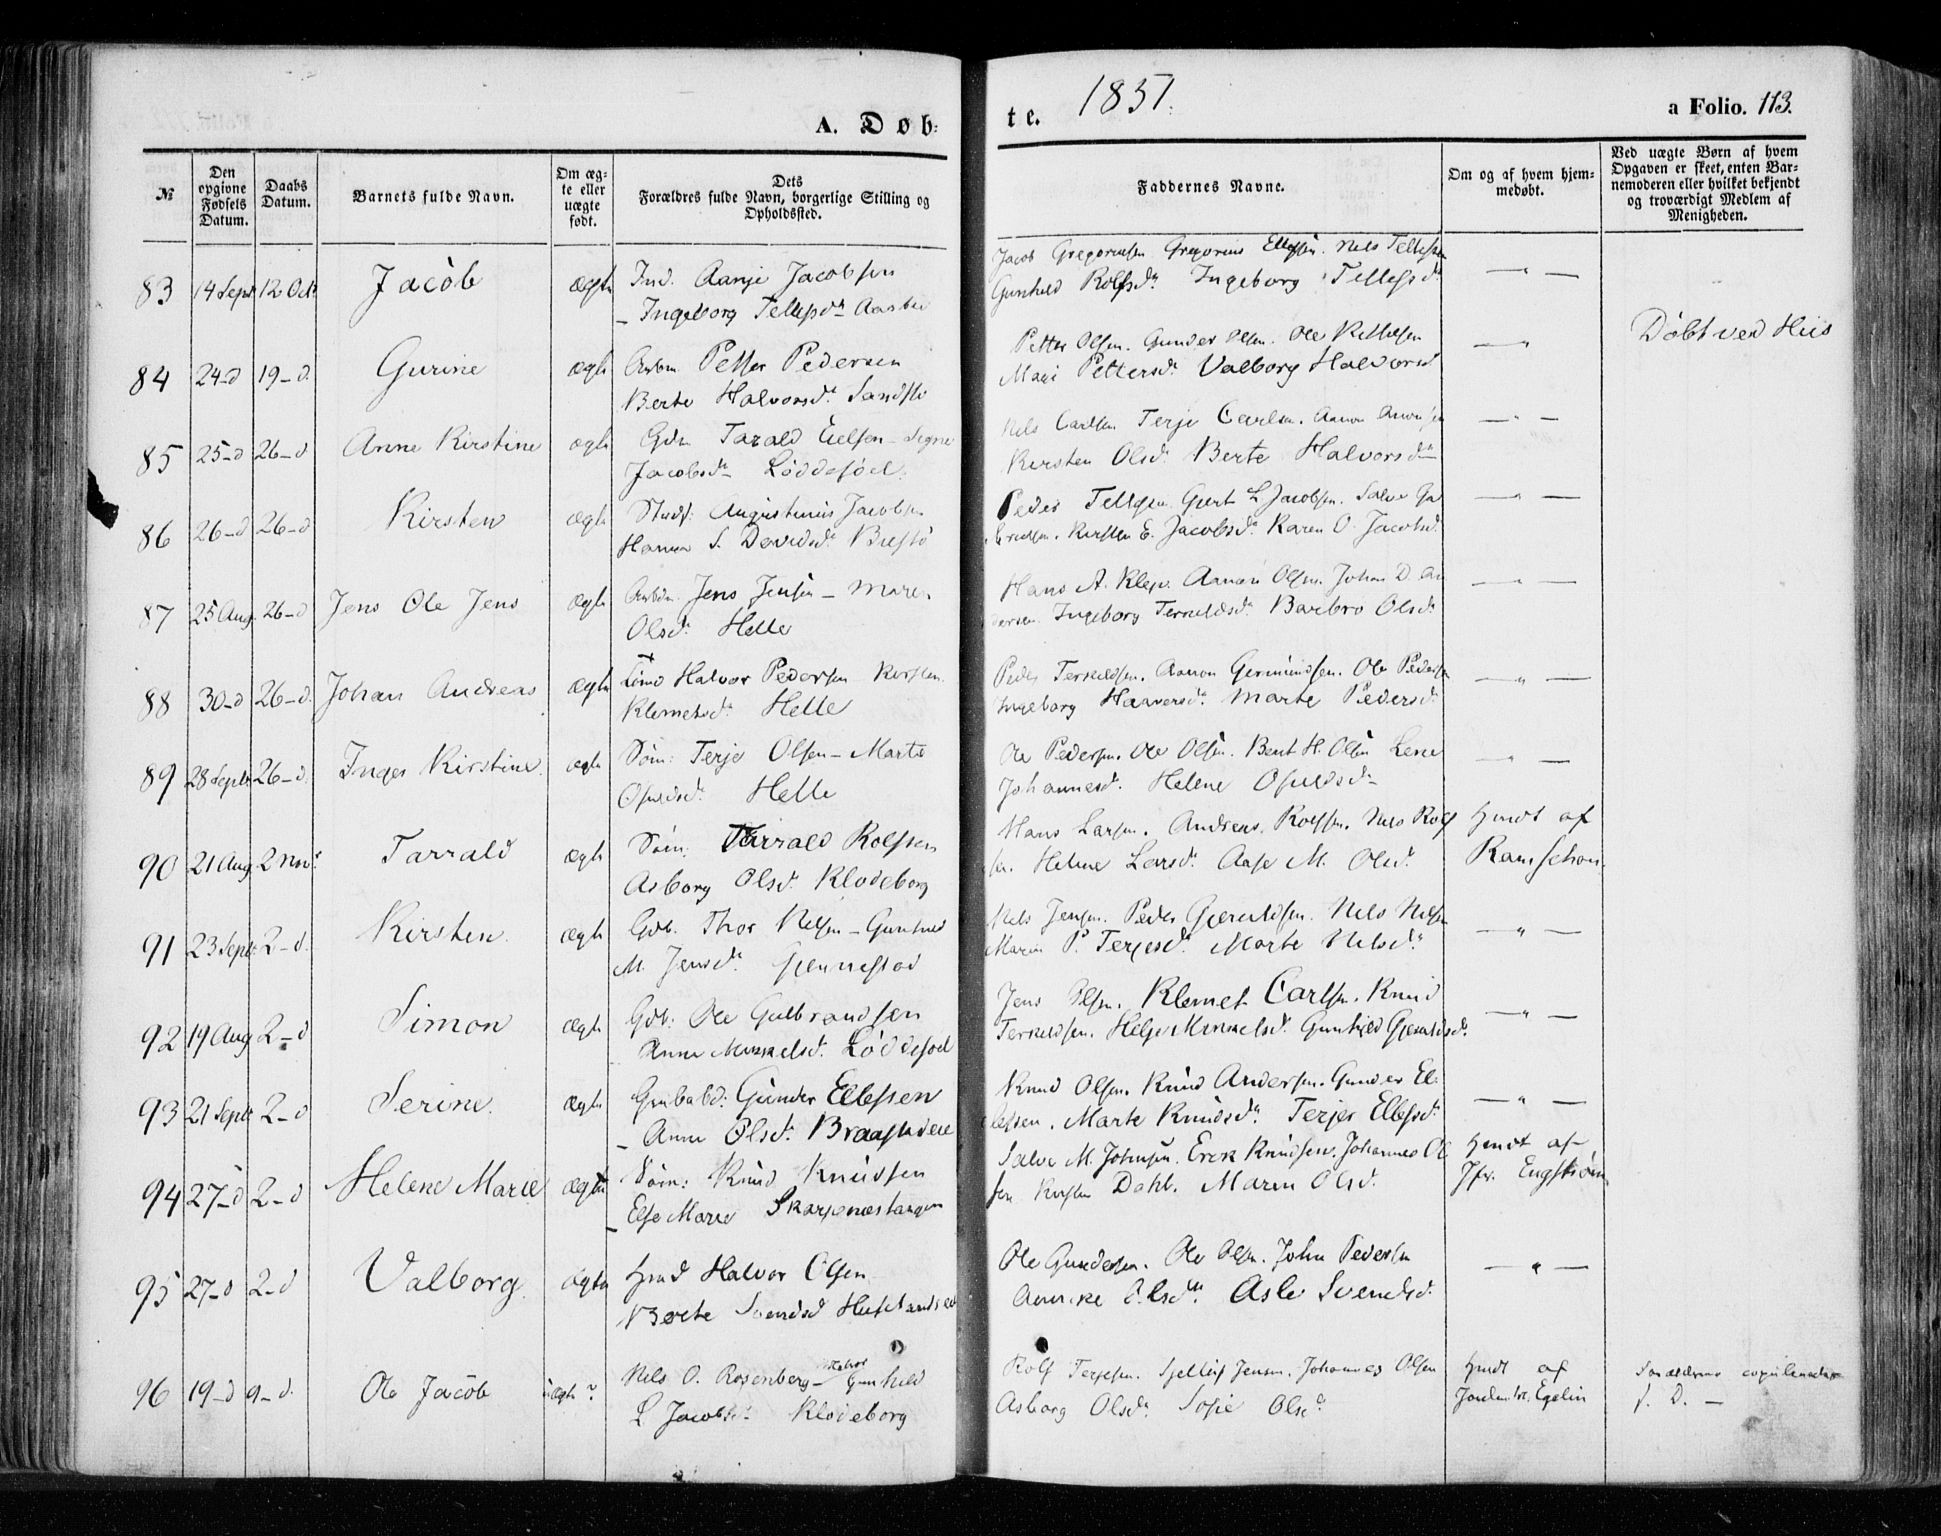 A. Døb:
te. 1851.
a Folio. 113.
№
Den opgivne Fødsels Datum.
Daabs Datum.
Barnets fulde Navn.
Om ægte eller uægte født.
Dets Forældres fulde Navn, borgerlige Stilling og Opholdssted.
Faddernes Navne.
Om og af hvem hjemmedøbt.
Ved uægte Børn af hvem Opgaven er skeet, enten Barnemoderen eller hvilket bekjendt og troværdigt Medlem af Menigheden.
83 14 Sept 12 Oct Jacob ægte Ind. Aanje Jacobsen
Ingeborg Tellefsd.
Jacob Gregoriusen Gregorius Ellefsen. Nils Tellefsen
Gunhild Rolfsd. Ingeborg Tellefsd. —„—
84 24-d 19-d. Gurine ægte Arbm. Petter Pedersen
Berte Halvorsd. Sandstø
Petter Olsen. Gunder Olsen. Ole Kittelsen
Mari Pettersd. Valborg Halvorsd —„— Døbt ved Hiis
85 25-d 26-d Anne Kirstine ægte Gdm Tarald Eielsen - Signe
Jacobsd. Løddesøel.
Nils Carlsen Terje Carlsen. Aanon
Kirsten Olsd. Berte Halvorsd. —„—
86 26-d 26-d Kirsten ægte Augustinus Jacobsen
Hanna S. Davidsd. Buestø
Peder Tellefsen Gjert L Jacobsen. Salve
Kirsten E. Jacobsd. Karen O. Jacobsd. —„—
87 25 Aug. 26-d Jens Ole Jens ægte Arbdm. Jens Jensen - Maren
Olsd. Helle
Hans A. Klep. Aanon Olsen. Johan D. An
dersen. Ingeborg Terkildsd. Barbro Olsd. —„—
88 30-d 26-d. Johan Andreas ægte Halvor Pedersen Kirsten
Klemetsd. Helle
Peder Terkeldsen. Aanon Germundsen. Ole Pedersen
Ingeborg Haaversd. Marte Pedersd. —„—
89 28 Septb 26-d. Inger Kirstine. ægte Søm: Terje Olsen - Marte
Osuldsd. Helle
Ole Pedersen. Ole Olsen. Bent H. Olsen Lene
Johannesd. Helene Osuldsd. —„—
90 21 Aug 2 Nov. Tarrald ægte Søm: Tarrald Rolfsen
Asborg Olsd. Klodeborg
Hans Larsen. Andreas Rolfsen. Nils Rolf
sen. Helene Larsd. Aase M. Olsd. Hmdt af
91 23 Sept. 2-d. Kirsten. ægte Gdb. Thor Nilsen - Gunhild
M. Jensd. Gjennestad
Nils Jensen. Peder Gjeruldsen. Nils Nilsen
Maren P. Terjesd. Marte Nilsd. —„—
92 19 Aug 2-d Simon ægte Gdb: Ole Gulbrandsen
Anne Mikkelsd. Løddesøel
Jens Olsen. Klemet Carlsen. Knud
Terkeldsen. Helje Mikkelsd. Gunhild Gjeruldsd. —„—
93 21 Septb 2-d Serine. ægte Gunder Ellefsen
Anne Olsd.
Knud Olsen. Knud Andersen. Gunder El
lefsen. Marte Knudsd. Terjer Ellefsd. —„—
94 27-d 2-d Helene Marie ægte Søm: Knud Knudsen
Else Marie
Salve M. Johnsen. Erek Knudsen. Johannes Ol
sen Kirsten Dahl. Maren Olsd. Hmdt af
Jfr. Engstrøm
95 27-d 2-d Valborg ægte Hmd Halvor Olsen
Berte Svendsd
Ole Gundersen. Ole Olsen. John Pedersen
Annike Olsd. Asle Svendsd. —„—
96 19-d 9-d. Ole Jacob uægte? Nils O. Rosenberg - Gunhild
L. Jacobsd. Klodeborg
Rolf Terjesen. Jensen. Johannes Olsen
Asborg Olsd. Sofie Olsd. Hmdt af
Egelin
Forældrene copulerede
s. D. —